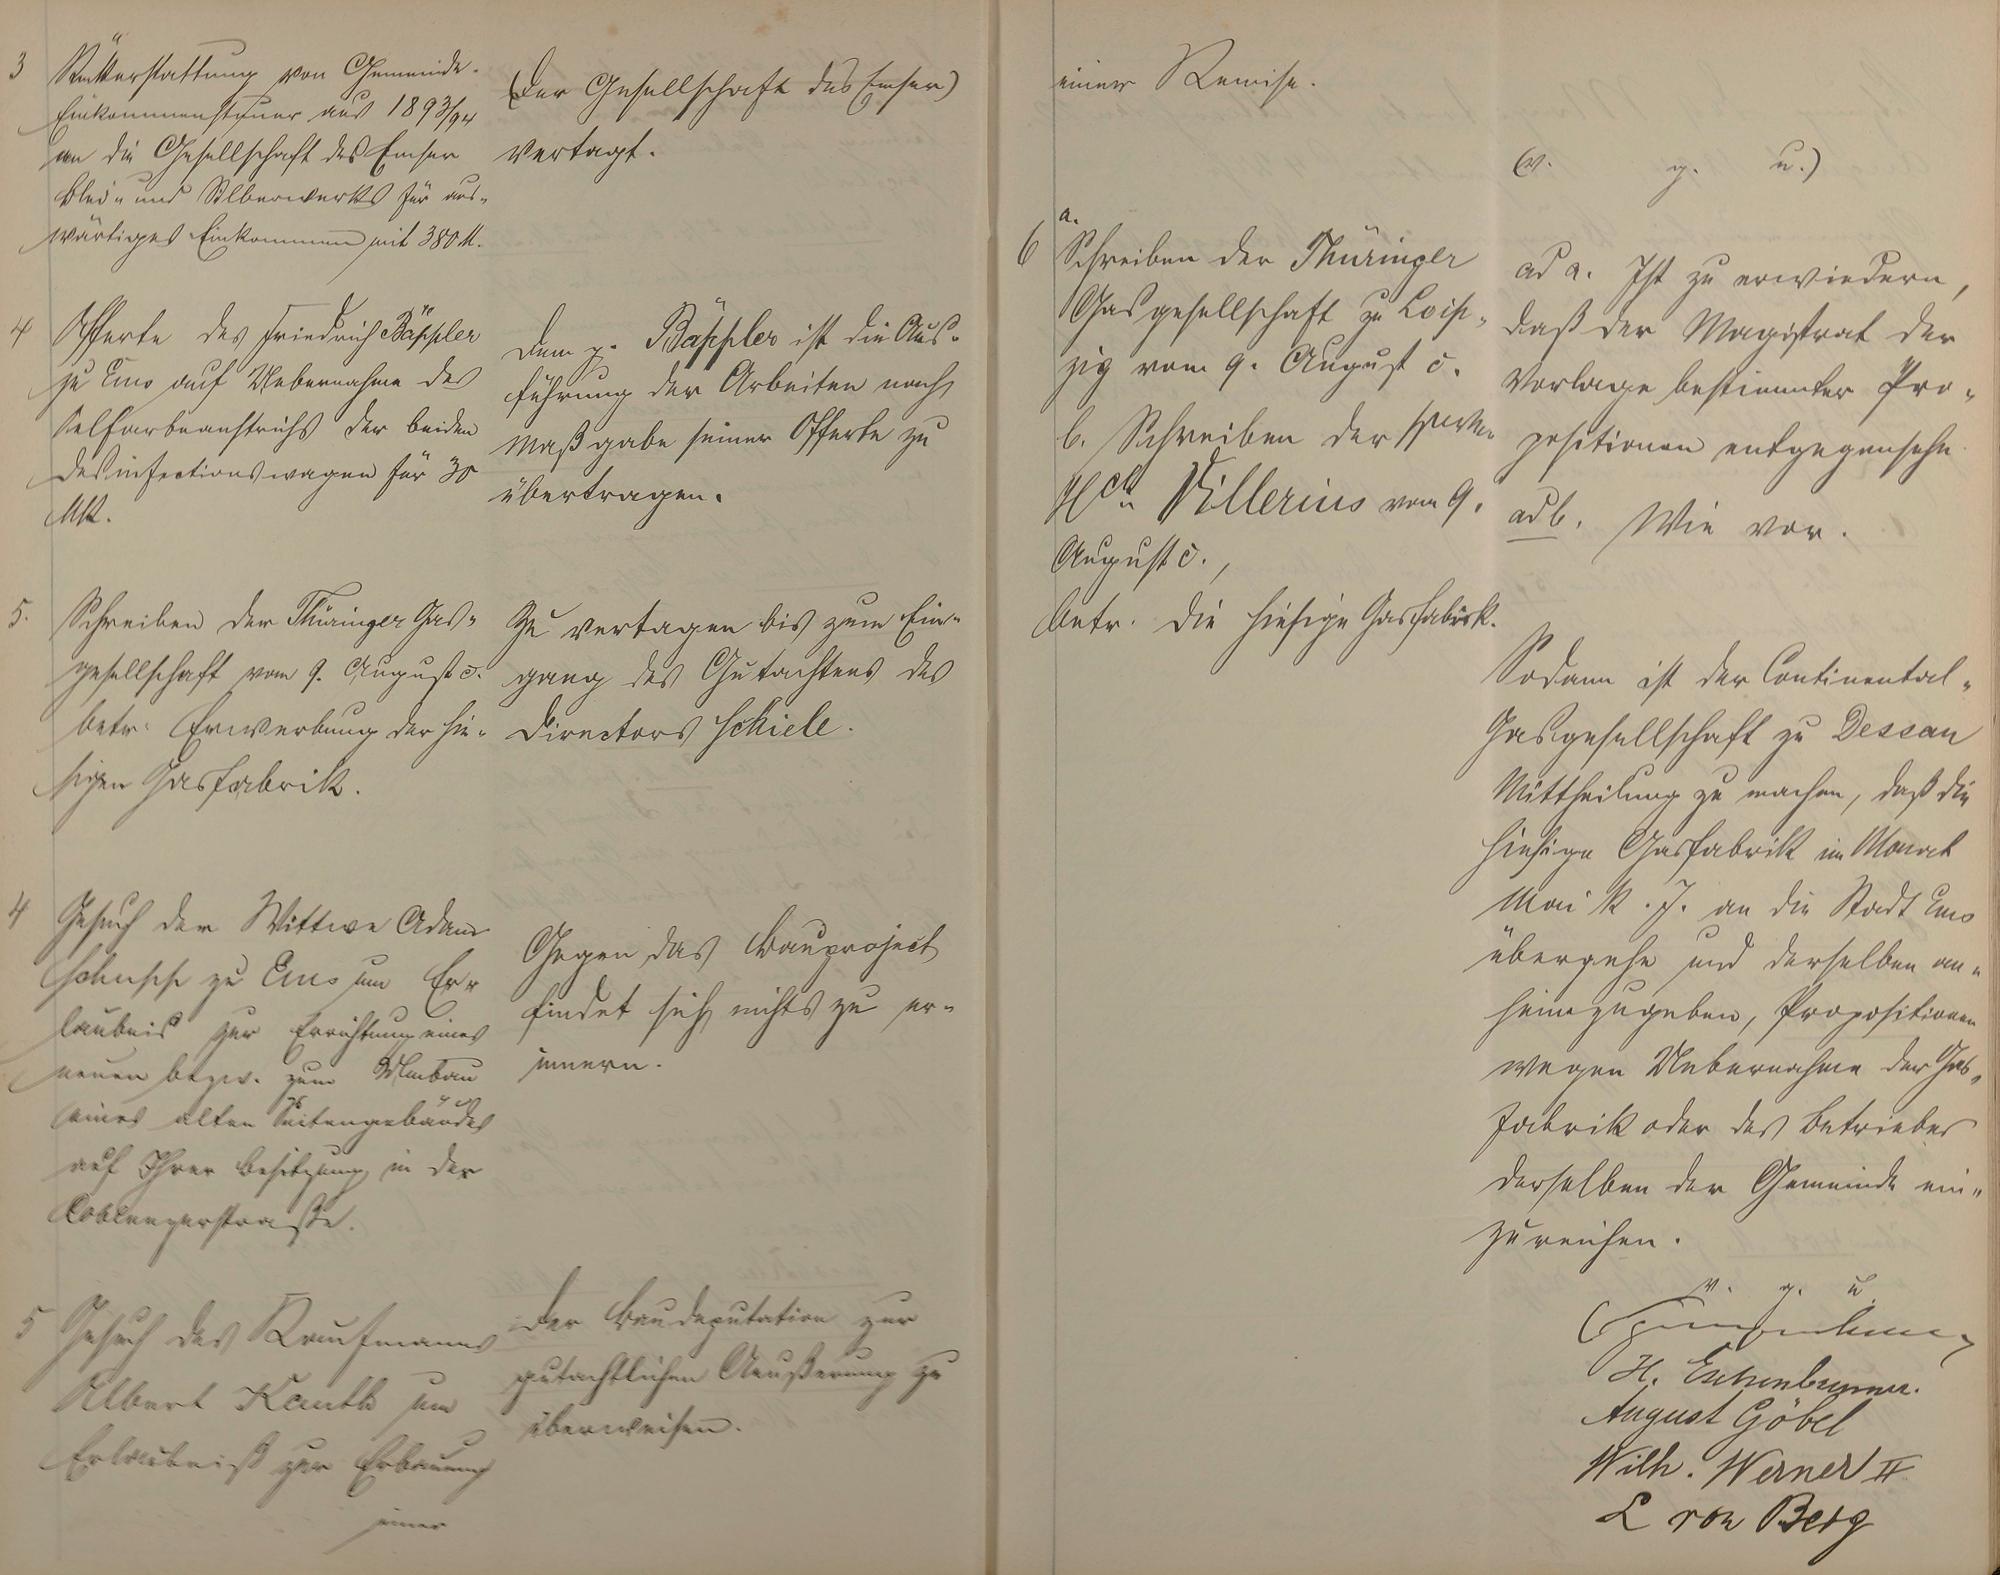 3 Rückerstattung von Gemeinde-
Einkommensteuer aus 1893/94
an die Gesellschaft des Emser
Blei- und Silberwerks für aus-
wärtiges Einkommen mit 380 M.
(Der Gesellschaft des Emser)
Vertagt.
4 Offerte des Friedrich Bäppler
zu Ems auf Uebernahme des
Oelfarbeanstrichs der beiden
Desinfectionswagen für 30
Mk.
Dem p. Bäppler ist die Aus-
führung der Arbeiten nach
Maßgabe seiner Offerte zu
übertragen.
5. Schreiben der Thüringer Gas-
gesellschaft vom 9. August c.
betr. Erwerbung der hie-
sigen Gasfabrik.
Zu vertagen bis zum Ein-
gang des Gutachtens des
Directors Schiele.
4 Gesuch der Wittwe Adam
zu Ems um Er-
laubnis zur Errichtung eines
neuen bezw. zum Umbau
eines alten Seitengebäudes
auf Ihrer Besitzung in der
Coblenzerstraße.
Gegen das Bauproject
findet sich nichts zu er-
innern.
5 Gesuch des Kaufmanns
Albert Kauth um
Erlaubniß zur Erbauung
einer
Der Baudeputation zur
gutachtlichen Aeußerung zu
überweisen.
einer Remise.
(v. g. u.)
6 a. Schreiben der Thüringer
Gasgesellschaft zu Leip-
zig vom 9. August c.
b. Schreiben der
Villerius vom 9.
August c.,
betr. die hiesige Gasfabrik.
ad a. Ist zu erwiedern,
daß der Magistrat der
Vorlage bestimmter Pro-
positionen entgegensehe.
ad b. Wie vor.
Sodann ist der Continental-
Gasgesellschaft zu Dessau
Mittheilung zu machen, daß die
hiesige Gasfabrik im Monat
Mai k. J. an die Stadt Ems
übergehe und derselben an-
heimzugeben, Propositionen
wegen Uebernahme der Gas-
fabrik oder des Betriebes
derselben der Gemeinde ein-
zureichen.
v. g. u.
H. Eschenbrenner.
August Göbel
Wilh. Werner II
L von Berg